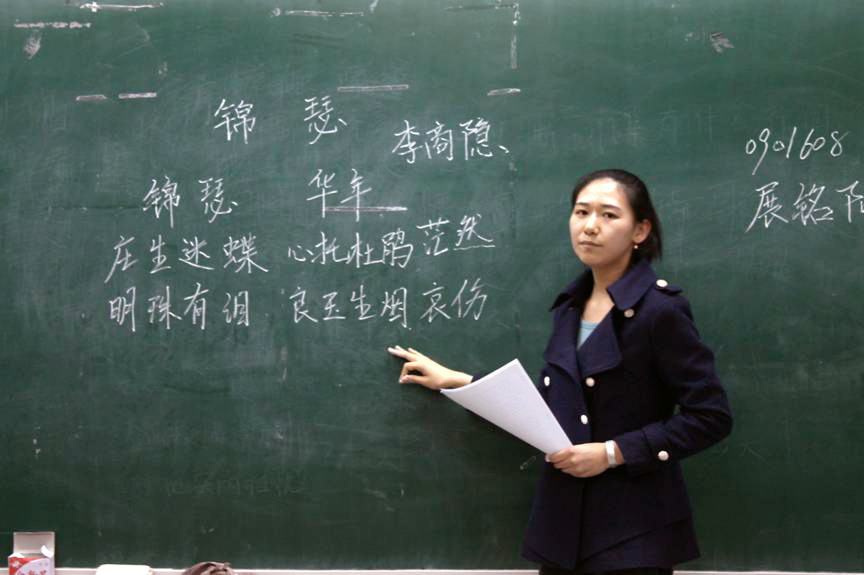 锦瑟
李商隐、
锦瑟 华年
庄生迷蝶 心托杜鹃 茫然
明珠有泪 良玉生烟 哀伤
0901608
展铭